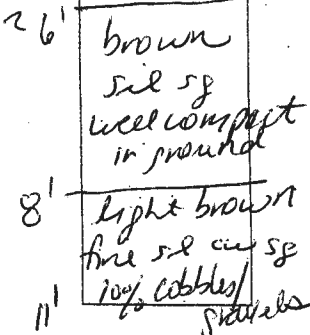 ~ 6'
brown
sil sg
well compact
in ground
8'
light brown
fine sil cu sg
10% cobbles/
gravels
11'